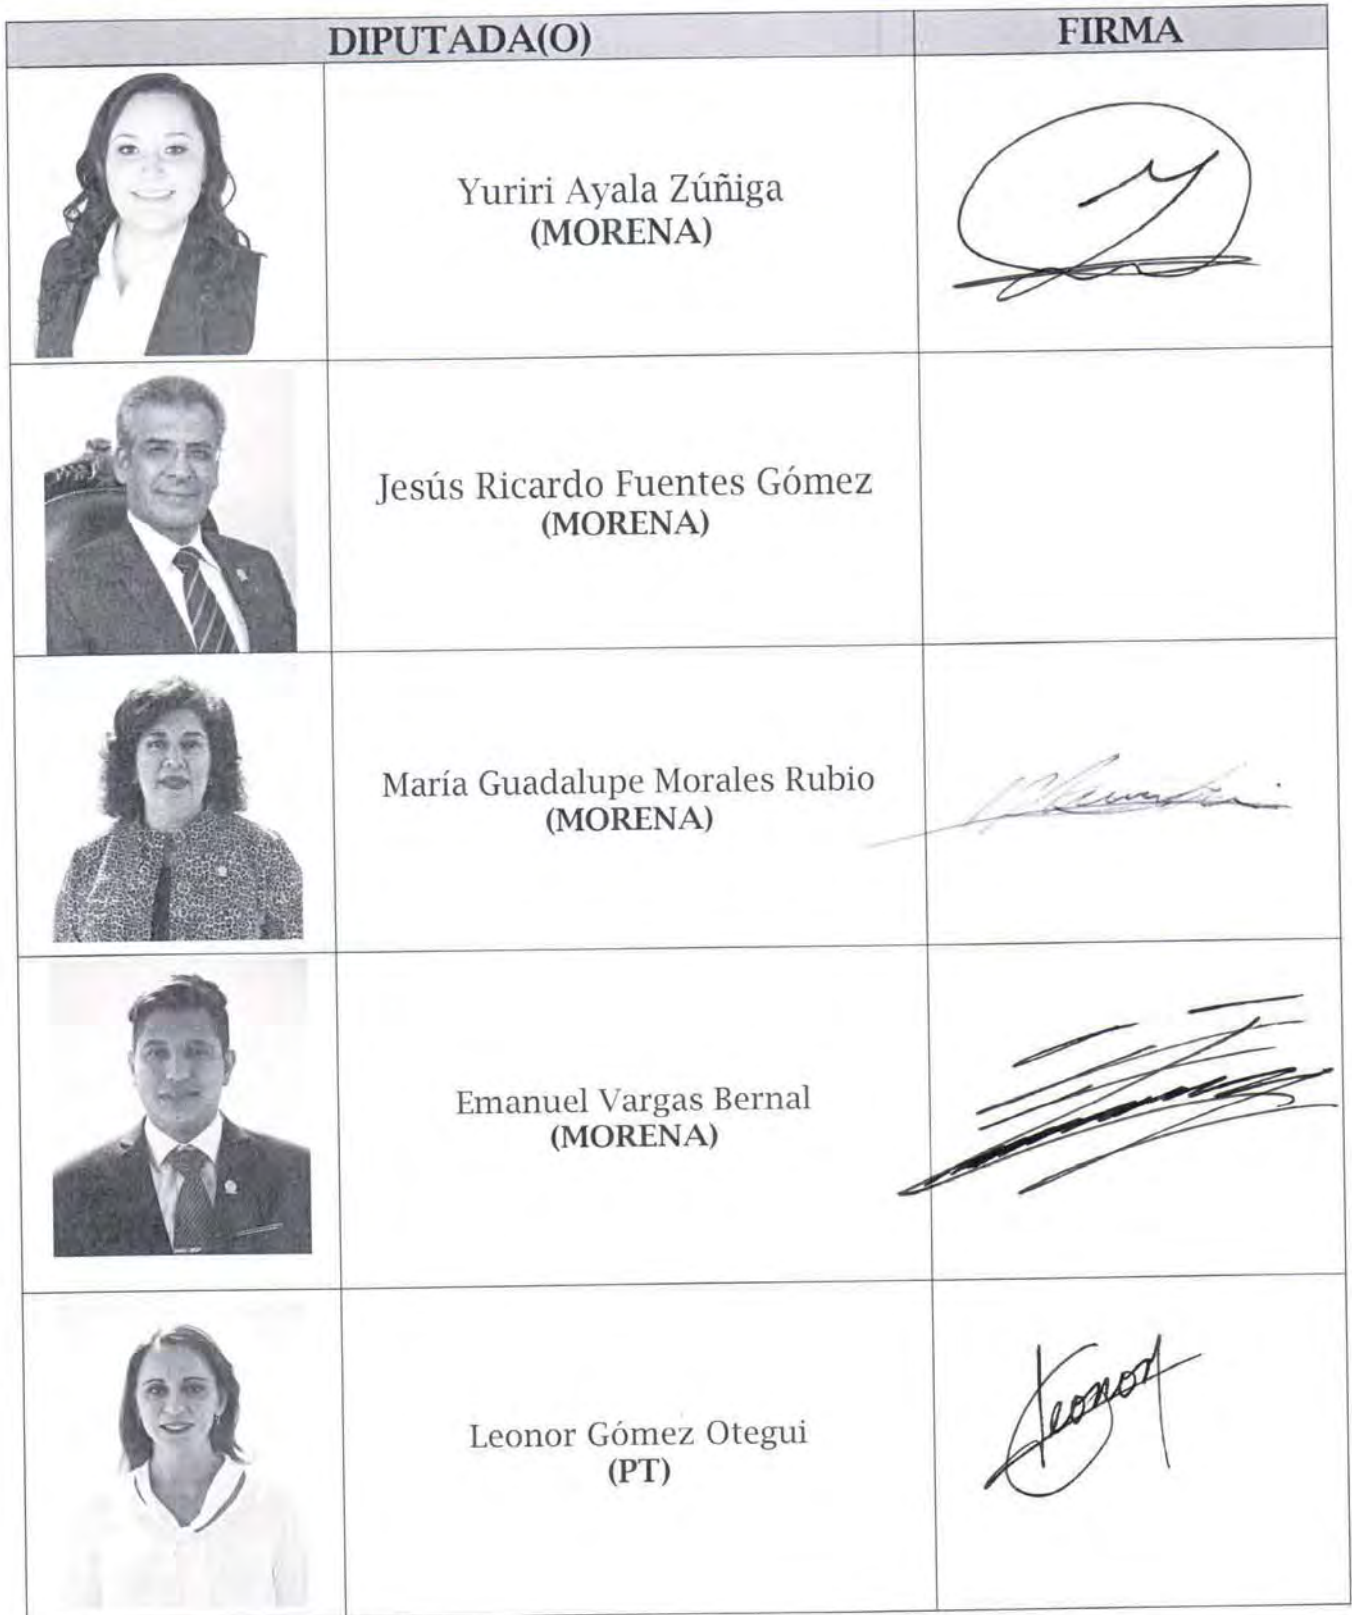 DIPUTADA(O)
FIRMA
Yuriri Ayala Zúñiga
(MORENA)
Jesús Ricardo Fuentes Gómez
(MORENA)
María Guadalupe Morales Rubio
(MORENA)
Emanuel Vargas Bernal
(MORENA)
Leonor Gómez Otegui
(PT)
Leonor